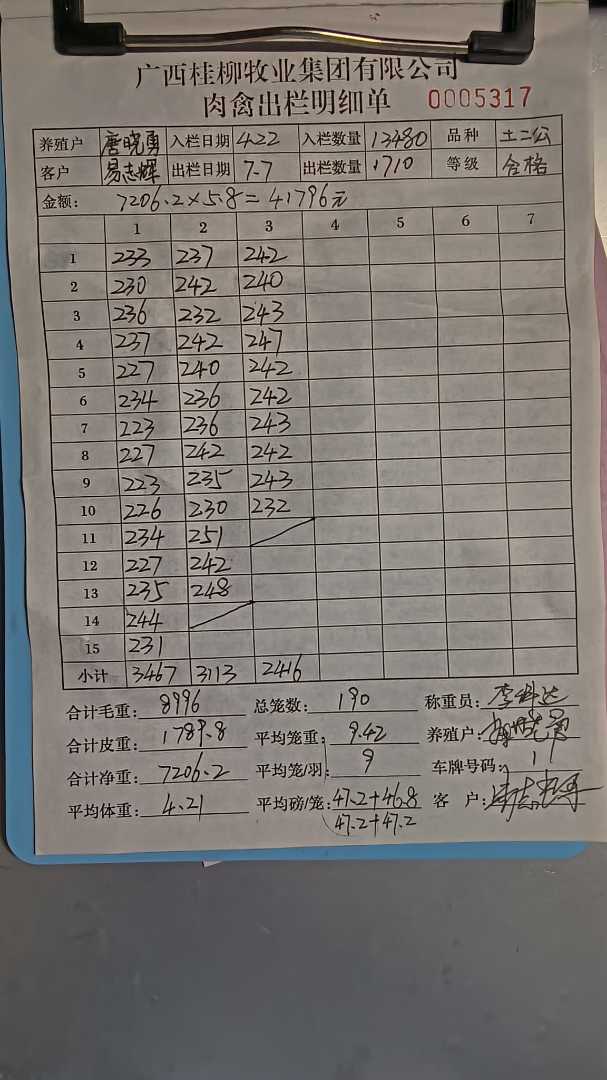 广西桂柳牧业集团有限公司
肉禽出栏明细单 0005317
养殖户 唐晓勇 入栏日期 4.22 入栏数量 13480 品种 土二公
客户 易志辉 出栏日期 7.7 出栏数量 1710 等级 合格
金额: 7206.2×5.8=41796元
1 2 3 4 5 6 7
1 233 237 242
2 230 242 240
3 236 232 243
4 237 242 247
5 227 240 242
6 234 236 242
7 223 236 243
8 227 242 242
9 223 235 243
10 226 230 232
11 234 251
12 227 242
13 235 248
14 244
15 231
小计 3467 3113 2416
合计毛重: 8996 总笼数: 190 称重员:
合计皮重: 1789.8 平均笼重: 9.42 养殖户: 唐晓勇
合计净重: 7206.2 平均笼/羽: 9 车牌号码:
平均体重: 4.21 平均磅/笼: 47.2+46.8 客 户: 易志辉
47.2+47.2